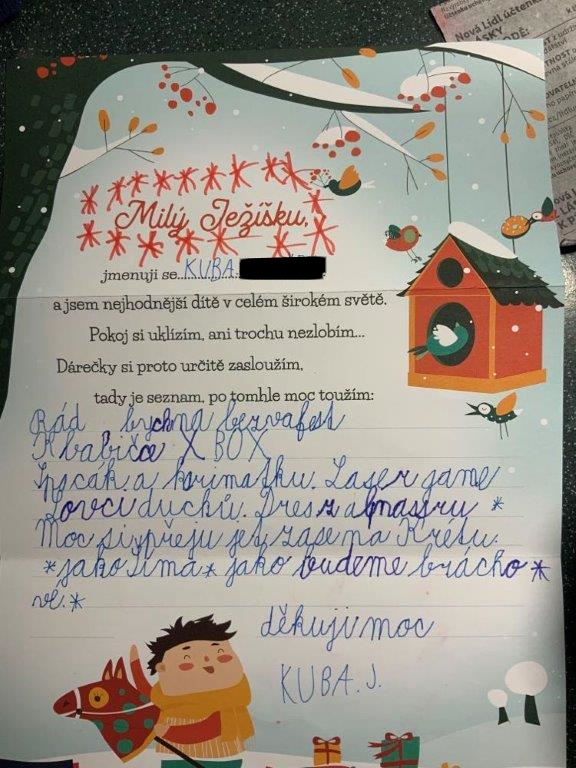 Nová Lidl účtenka
Milý Ježíšku,
jmenuji se..KUBA.
a jsem nejhodnější dítě v celém širokém světě.
Pokoj si uklízím, ani trochu nezlobím...
Dárečky si proto určitě zasloužím,
tady je seznam, po tomhle moc toužím:
Rád bych na bezvafest
K babičce X BOX
Spacák a karimatku. Laser game
Lovci duchů. Dres z
Moc si přeju jet zase na Krétu.
*jako Tima* jako budeme brácho *
vé.*
děkuji moc
KUBA. J.